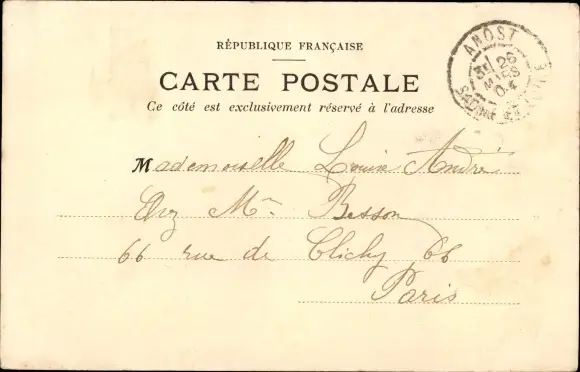 RÉPUBLIQUE FRANÇAISE
CARTE POSTALE
Ce côté est exclusivement réservé à l'adresse
Mademoiselle Louise André
Chez Mr Besson
66 rue de Clichy 66
Paris
ANOST
26
MARS
04
SAONE ET LOIRE